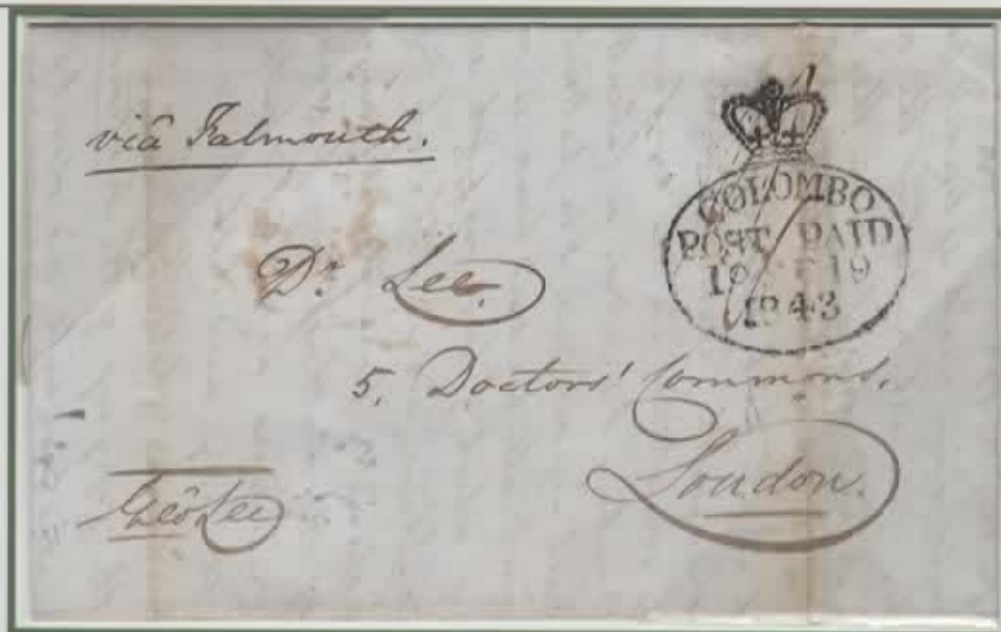 viâ Falmouth.
COLOMBO
POST PAID
19
1843
Dr. Lee.
5, Doctors' Commons,
London.
Geo Lee